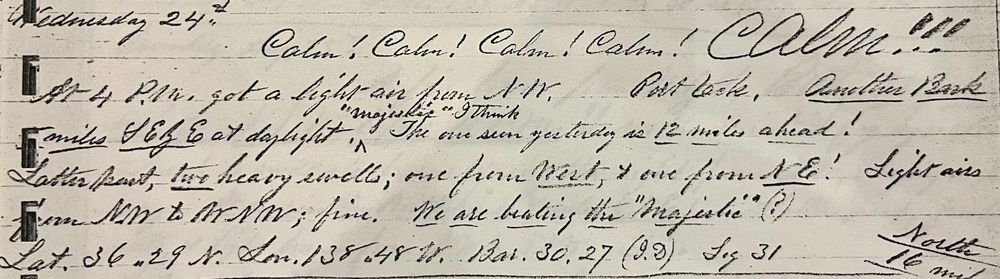 Wednesday 24th.
Calm! Calm! Calm! Calm! Calm!!!
At 4 P.M. got a light air from NW. Port tack. Another Bark
miles SE by E at daylight, ^ "Majestic" I think The one seen yesterday is 12 miles ahead!
Latter part, two heavy swells; one from West, & one from NE! Light airs
from NW to WNW; fine. We are beating the "Majestic" (?)
Lat. 36.29 N. Lon. 138.48 W. Bar. 30.27 (I.D) Log 31 North
16 mi